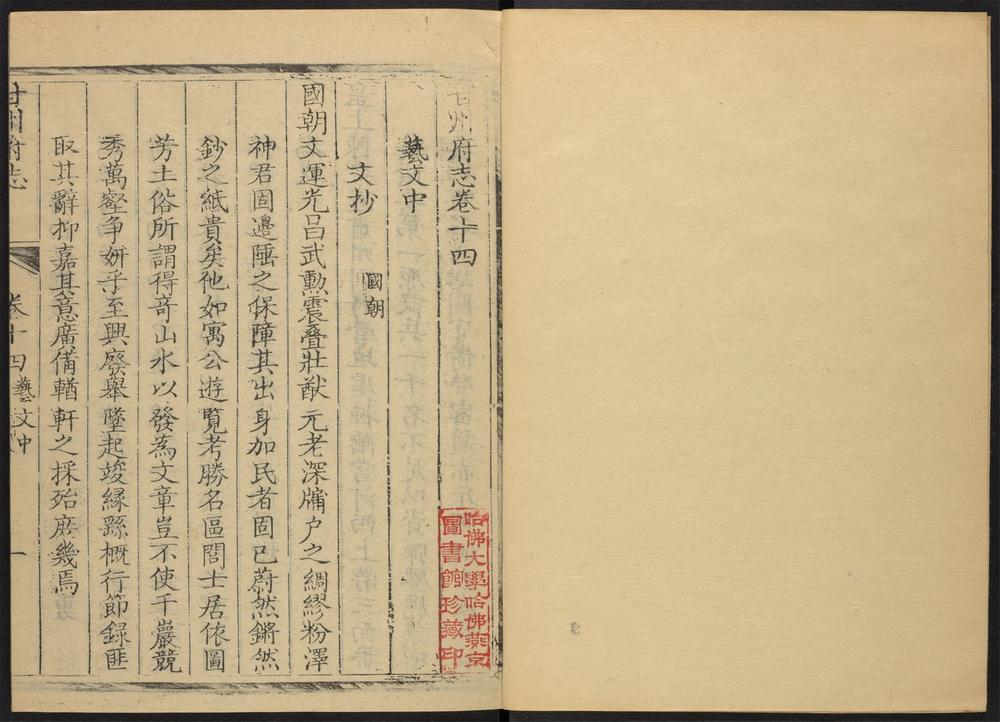 甘州府志卷十四
藝文中
文抄 國朝
國朝文運光昌武勲震叠壯猷元老深牖户之綢繆粉澤
神君固邊陲之保障其出身加民者固已蔚然鏘然
鈔之紙貴矣他如寓公遊覽考勝名區閭士居依圖
芳土俗所謂得竒山水以發為文章豈不使千巖競
秀萬壑争妍乎至興廢舉墜起竣縁繇概行節録匪
取其辭抑嘉其意廣備輶軒之採殆庶幾焉
甘州府志 卷十四 藝文中 一
哈佛大學哈佛燕京
圖書館珍藏印